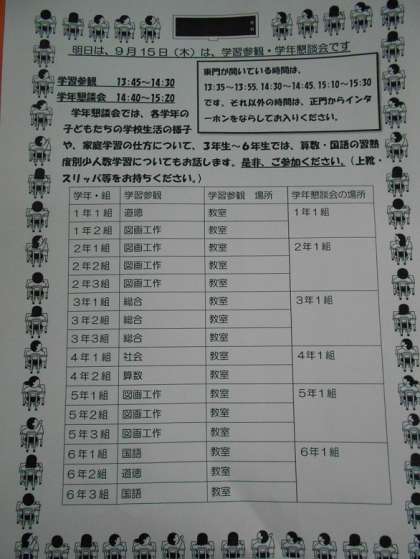 明日は、9月15日(木)は、学習参観・学年懇談会です
学習参観　13:45～14:30
学年懇談会　14:40～15:20
東門が開いている時間は、
13:35～13:55、14:30～14:45、15:10～15:30
です。それ以外の時間は、正門からインタ
ーホンをならしてお入りください。
学年懇談会では、各学年の
子どもたちの学校生活の様子
や、家庭学習の仕方について、3年生～6年生では、算数・国語の習熟
度別少人数学習についてもお話します。是非、ご参加ください。(上靴・
スリッパ等をお持ちください。)
学年・組　学習参観　学習参観　場所　学年懇談会の場所
1年1組　道徳　教室　1年1組
1年2組　図画工作　教室
2年1組　図画工作　教室　2年1組
2年2組　図画工作　教室
2年3組　図画工作　教室
3年1組　総合　教室　3年1組
3年2組　総合　教室
3年3組　総合　教室
4年1組　社会　教室　4年1組
4年2組　算数　教室
5年1組　図画工作　教室　5年1組
5年2組　図画工作　教室
5年3組　図画工作　教室
6年1組　国語　教室　6年1組
6年2組　道徳　教室
6年3組　国語　教室